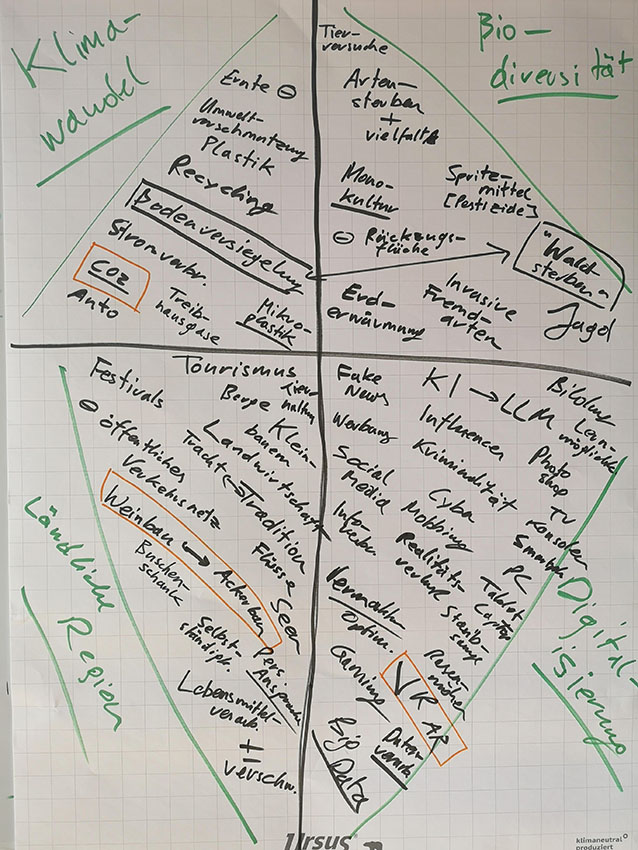 Klima-
wandel
Ernte ⊖
Umwelt-
verschmutzung
Plastik
Recycling
Bodenversiegelung
Stromverbr.
CO2
Auto
Treib-
hausgase
Mikro-
plastik
Bio-
diversität
Tier-
versuche
Arten-
sterben
+
vielfalt
Mono-
kultur
Spritz-
mittel
[Pestizide]
⊖ Rückzugs-
fläche
"Wald-
sterben"
Erd-
erwärmung
Invasive
Fremd-
arten
Jagd
Ländliche
Region
Festivals
Tourismus
Berge
Tier-
haltung
⊖ öffentliches
Verkehrsnetz
Klein-
bauern
Landwirtschaft
Tracht ← Tradition
Flüsse
Seen
Weinbau → Ackerbau
Buschen-
schank
Selbst-
ständigk.
Pers.
Lebensmittel-
verarb.
+
verschw.
Digital-
isierung
Fake
News
KI → LLM
Werbung
Influencer
Kriminalität
Photo
shop
Social
Media
Cyber
Mobbing
TV
Konsolen
Smartph.
PC
Realitäts-
verlust
Tablet
Laptop
Staub-
sauge
Rasen-
mäher
Optim.
Gaming
VR
AR
Daten-
Big
Data
Ursus
klimaneutral
produziert